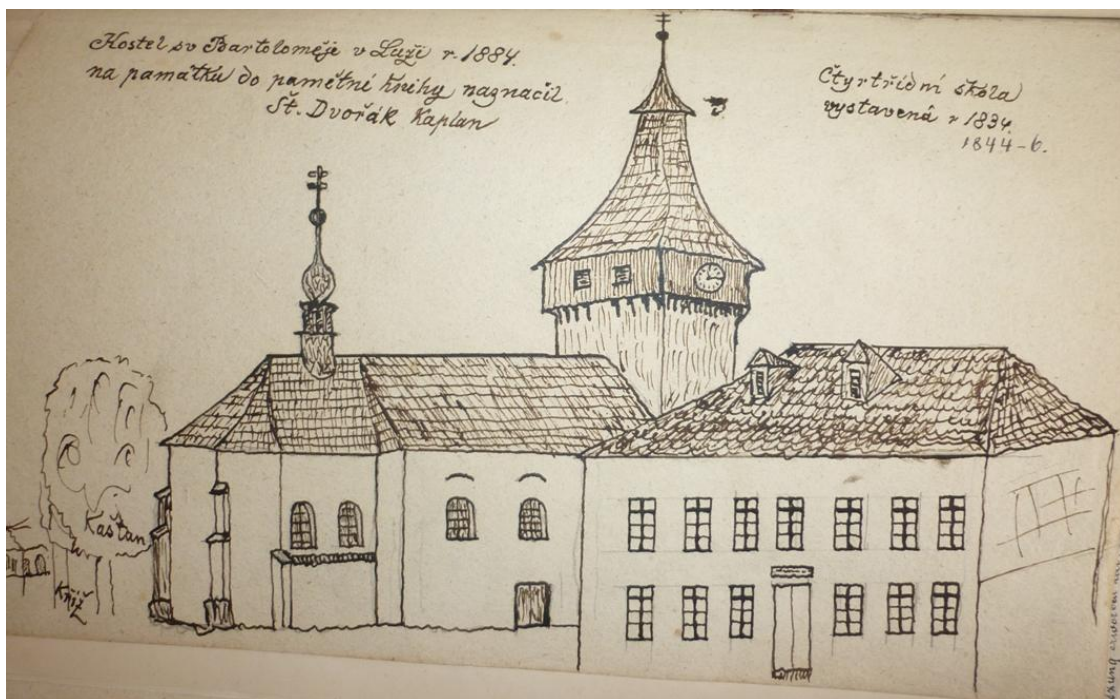 Kostel sv Bartoloměje v Luži r. 1884.
na památku do pamětní knihy naznačil
Št. Dvořák Kaplan
Čtyrtřídní škola
vystavená r 1834.
1844-6.
Kaštan
Kříž